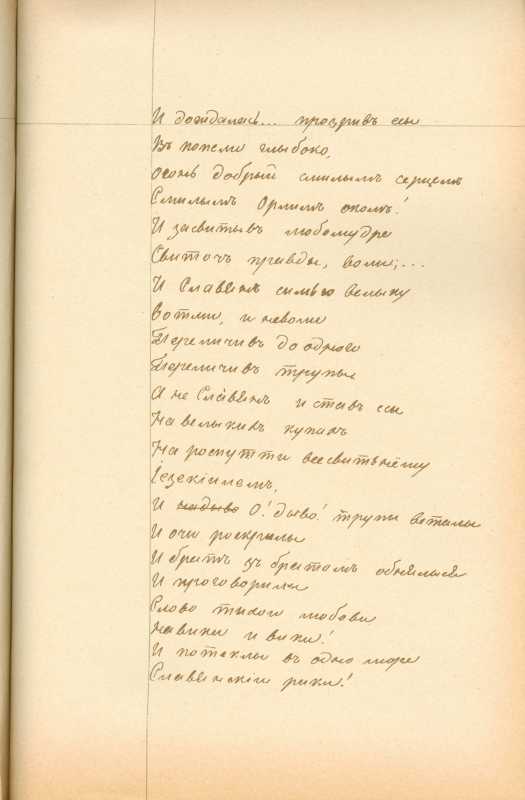 И дождалась... прозривъ есы
Въ попели глыбоко,
огонь добрый смилымъ серцемъ
Смилымъ Орлимъ окомъ!
И засвитывъ любомудре
Свиточъ правды, воли,...
И Славянъ симью велыку
Вотми, и неволи
Переличивъ до одного
Переличивъ трупы
А не Славянъ и ставъ есы
На велыкихъ купахъ
На роспутти всесвитнёму
Іезекіилемъ,
И надыво О! дыво! трупы всталы
И очи роскрылы
И братъ зъ братомъ обнялыся
И проговорили
Слово тыхои любови
навики и вики!
И потеклы въ одно море
Славянскіи рики!